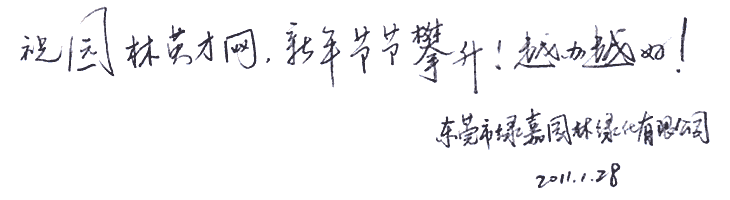 祝园林英才网，新年节节攀升！越办越好！
东莞市绿嘉园林绿化有限公司
2011.1.28